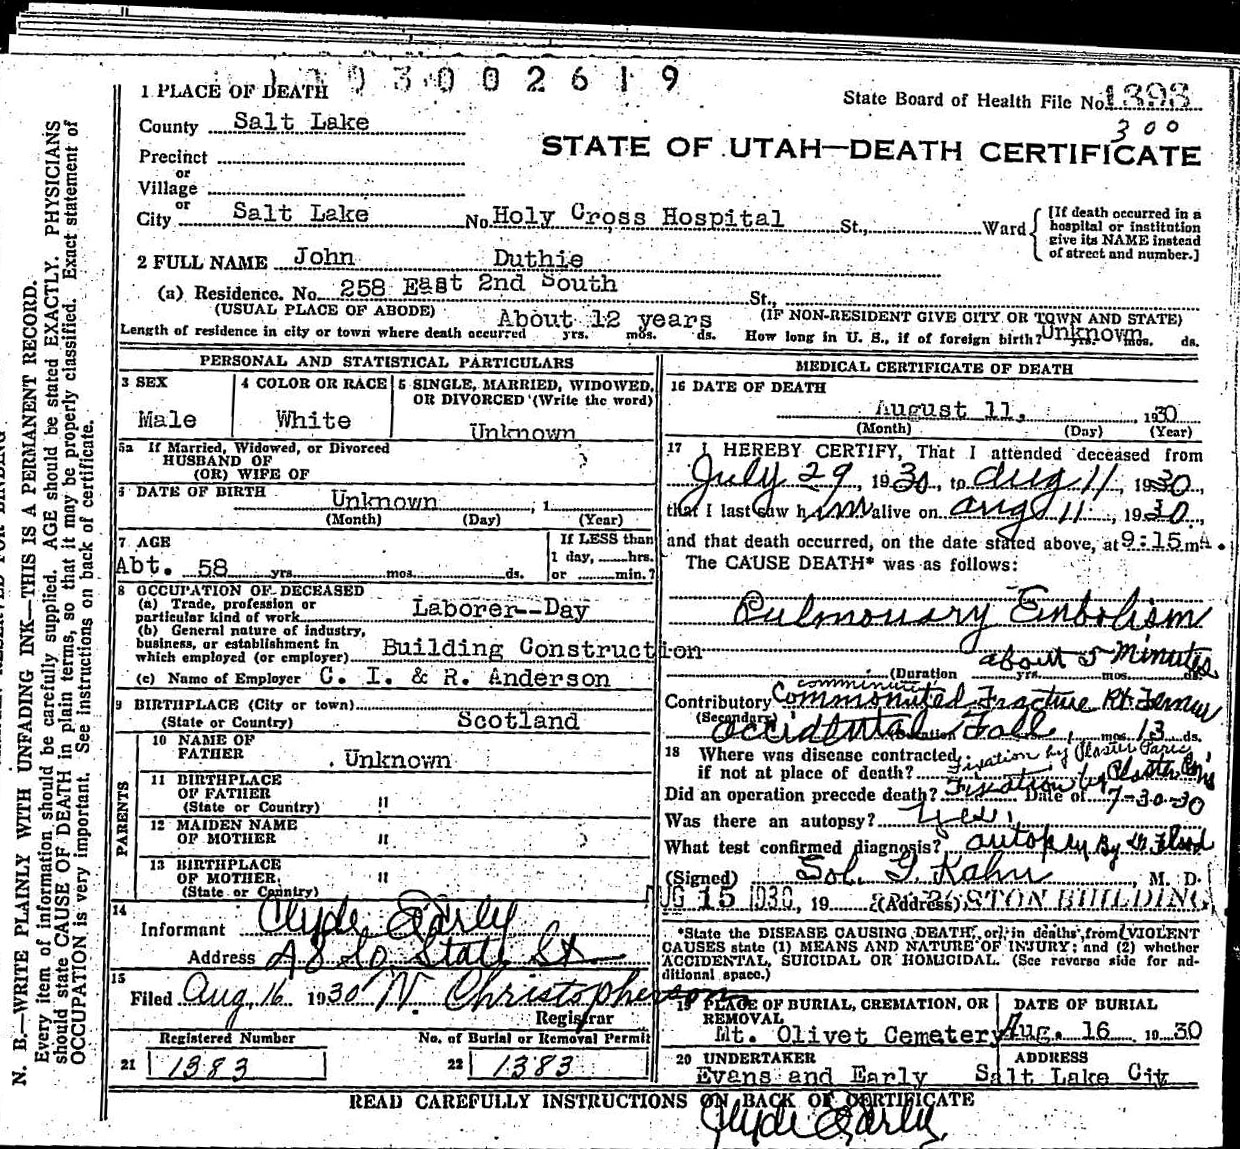 1 9 3 0 0 2 6 1 9
1 PLACE OF DEATH
State Board of Health File No. 1393
300
County Salt Lake
STATE OF UTAH—DEATH CERTIFICATE
Precinct
or
Village
or
City Salt Lake No. Holy Cross Hospital St., Ward
[If death occurred in a
hospital or institution
give its NAME instead
of street and number.]
2 FULL NAME John Duthie
(a) Residence. No. 258 East 2nd South St.,
(USUAL PLACE OF ABODE) (IF NON-RESIDENT GIVE CITY OR TOWN AND STATE)
About 12 years
Length of residence in city or town where death occurred yrs. mos. ds. How long in U. S., if of foreign birth? Unknown yrs. mos. ds.
PERSONAL AND STATISTICAL PARTICULARS
3 SEX
Male
4 COLOR OR RACE
White
5 SINGLE, MARRIED, WIDOWED,
OR DIVORCED (Write the word)
Unknown
5a If Married, Widowed, or Divorced
HUSBAND OF
(OR) WIFE OF
6 DATE OF BIRTH
Unknown, 1
(Month) (Day) (Year)
7 AGE
Abt. 58 yrs. mos. ds.
If LESS than
1 day, hrs.
or min.?
8 OCCUPATION OF DECEASED
(a) Trade, profession or
particular kind of work Laborer--Day
(b) General nature of industry,
business, or establishment in
which employed (or employer) Building Construction
(c) Name of Employer C. I. & R. Anderson
9 BIRTHPLACE (City or town)
(State or Country) Scotland
PARENTS
10 NAME OF
FATHER Unknown
11 BIRTHPLACE
OF FATHER
(State or Country) "
12 MAIDEN NAME
OF MOTHER "
13 BIRTHPLACE
OF MOTHER "
(State or Country)
14
Informant Clyde Early
Address 48 So State St
15
Filed Aug 16 1930 N. Christopherson
Registrar
Registered Number No. of Burial or Removal Permit
21 1383 22 1383
MEDICAL CERTIFICATE OF DEATH
16 DATE OF DEATH
August 11, 1930
(Month) (Day) (Year)
17 I HEREBY CERTIFY, That I attended deceased from
July 29, 1930, to Aug 11, 1930,
that I last saw him alive on Aug 11, 1930,
and that death occurred, on the date stated above, at 9:15 m A.
The CAUSE DEATH* was as follows:
Pulmonary Embolism
about 5 Minutes
(Duration yrs. mos. ds.
Contributory Comminuted Fracture Rt. Femur
(Secondary) Accidental Fall, mos. 13 ds.
18 Where was disease contracted
if not at place of death? Fixation by Plaster Paris
Did an operation precede death? Fixation by Plaster Paris Date of 7-30-30
Was there an autopsy? Yes.
What test confirmed diagnosis? autopsy By Dr. Flood
(Signed) Sol. G. Kahn, M. D.
AUG 15 1930, 19 (Address) BOSTON BUILDING
*State the DISEASE CAUSING DEATH, or, in deaths from VIOLENT
CAUSES state (1) MEANS AND NATURE OF INJURY; and (2) whether
ACCIDENTAL, SUICIDAL OR HOMICIDAL. (See reverse side for ad-
ditional space.)
19 PLACE OF BURIAL, CREMATION, OR
REMOVAL
Mt. Olivet Cemetery
DATE OF BURIAL
Aug. 16 1930
20 UNDERTAKER
Evans and Early
ADDRESS
Salt Lake City
READ CAREFULLY INSTRUCTIONS ON BACK OF CERTIFICATE
Clyde Early
N. B.—WRITE PLAINLY WITH UNFADING INK—THIS IS A PERMANENT RECORD.
Every item of information should be carefully supplied. AGE should be stated EXACTLY. PHYSICIANS
should state CAUSE OF DEATH in plain terms, so that it may be properly classified. Exact statement of
OCCUPATION is very important. See instructions on back of certificate.